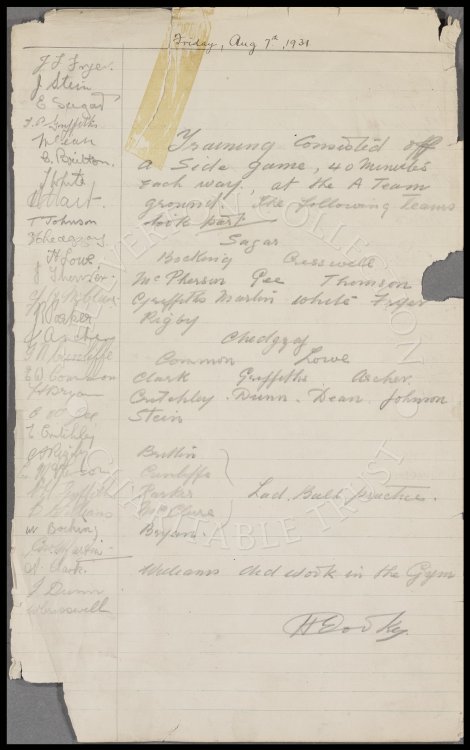 Friday, Aug 7th, 1931
J Stein
E Sagar
T. P. Griffiths
W Dean
C. Britton
J White
T Johnson
B Chedgzoy
H Lowe
J Thomson
J Parker
J Archer
G N Cunliffe
E W Common
F Bryan
C W Gee
E Critchley
J Rigby
D Williams
W Bocking
Geo Martin
A Clark
J Dunn
W Cresswell
Training Consisted off
a Side game, 40 minutes
each way, at the A Team
ground. The following teams
took part
Sagar
Bocking Cresswell
McPherson Gee Thomson
Griffiths Martin White Fryer
Rigby
Chedgzoy
Common Lowe
Clark Griffiths Archer
Critchley. Dunn. Dean. Johnson
Stein
Britton
Cunliffe
Parker
McClure
Bryan.
Lad. Ball practice.
Williams did work in the Gym
H E Cooke
EVERTON COLLECTION
CHARITABLE TRUST